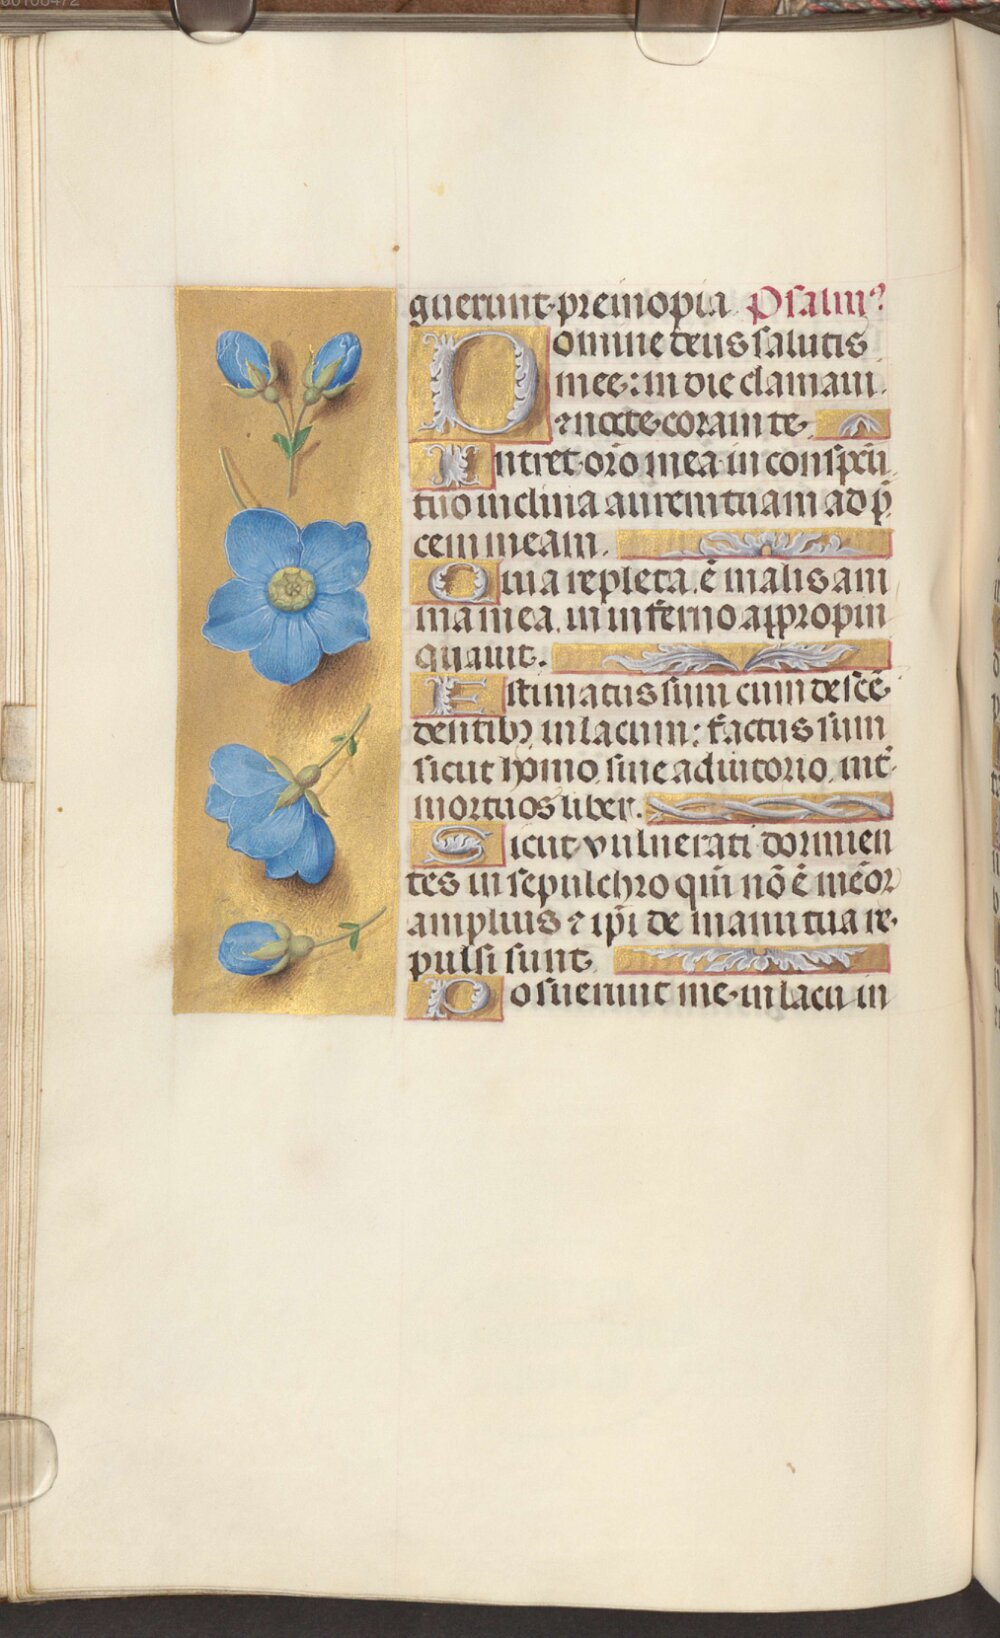 guerunt pre inopia. Psalm9
Domine deus salutis
mee: in die clamaui.
⁊ nocte coram te.
Intret or̄o mea in conspcū
tuo inclina aurem tuam ad p̄
cem meam.
Quia repleta. ē malis ani
ma mea. in inferno appropin
quauit.
Estimatus sum cum descē
dentibꝫ in lacum: factus sum
sicut homo sine adiutorio. int̄
mortuos liber.
Sicut vulnerati dormien
tes in sepulchro qui nō ē mēor
amplius ⁊ ip̄i de manu tua re
pulsi sunt.
Posuerunt me in lacu in